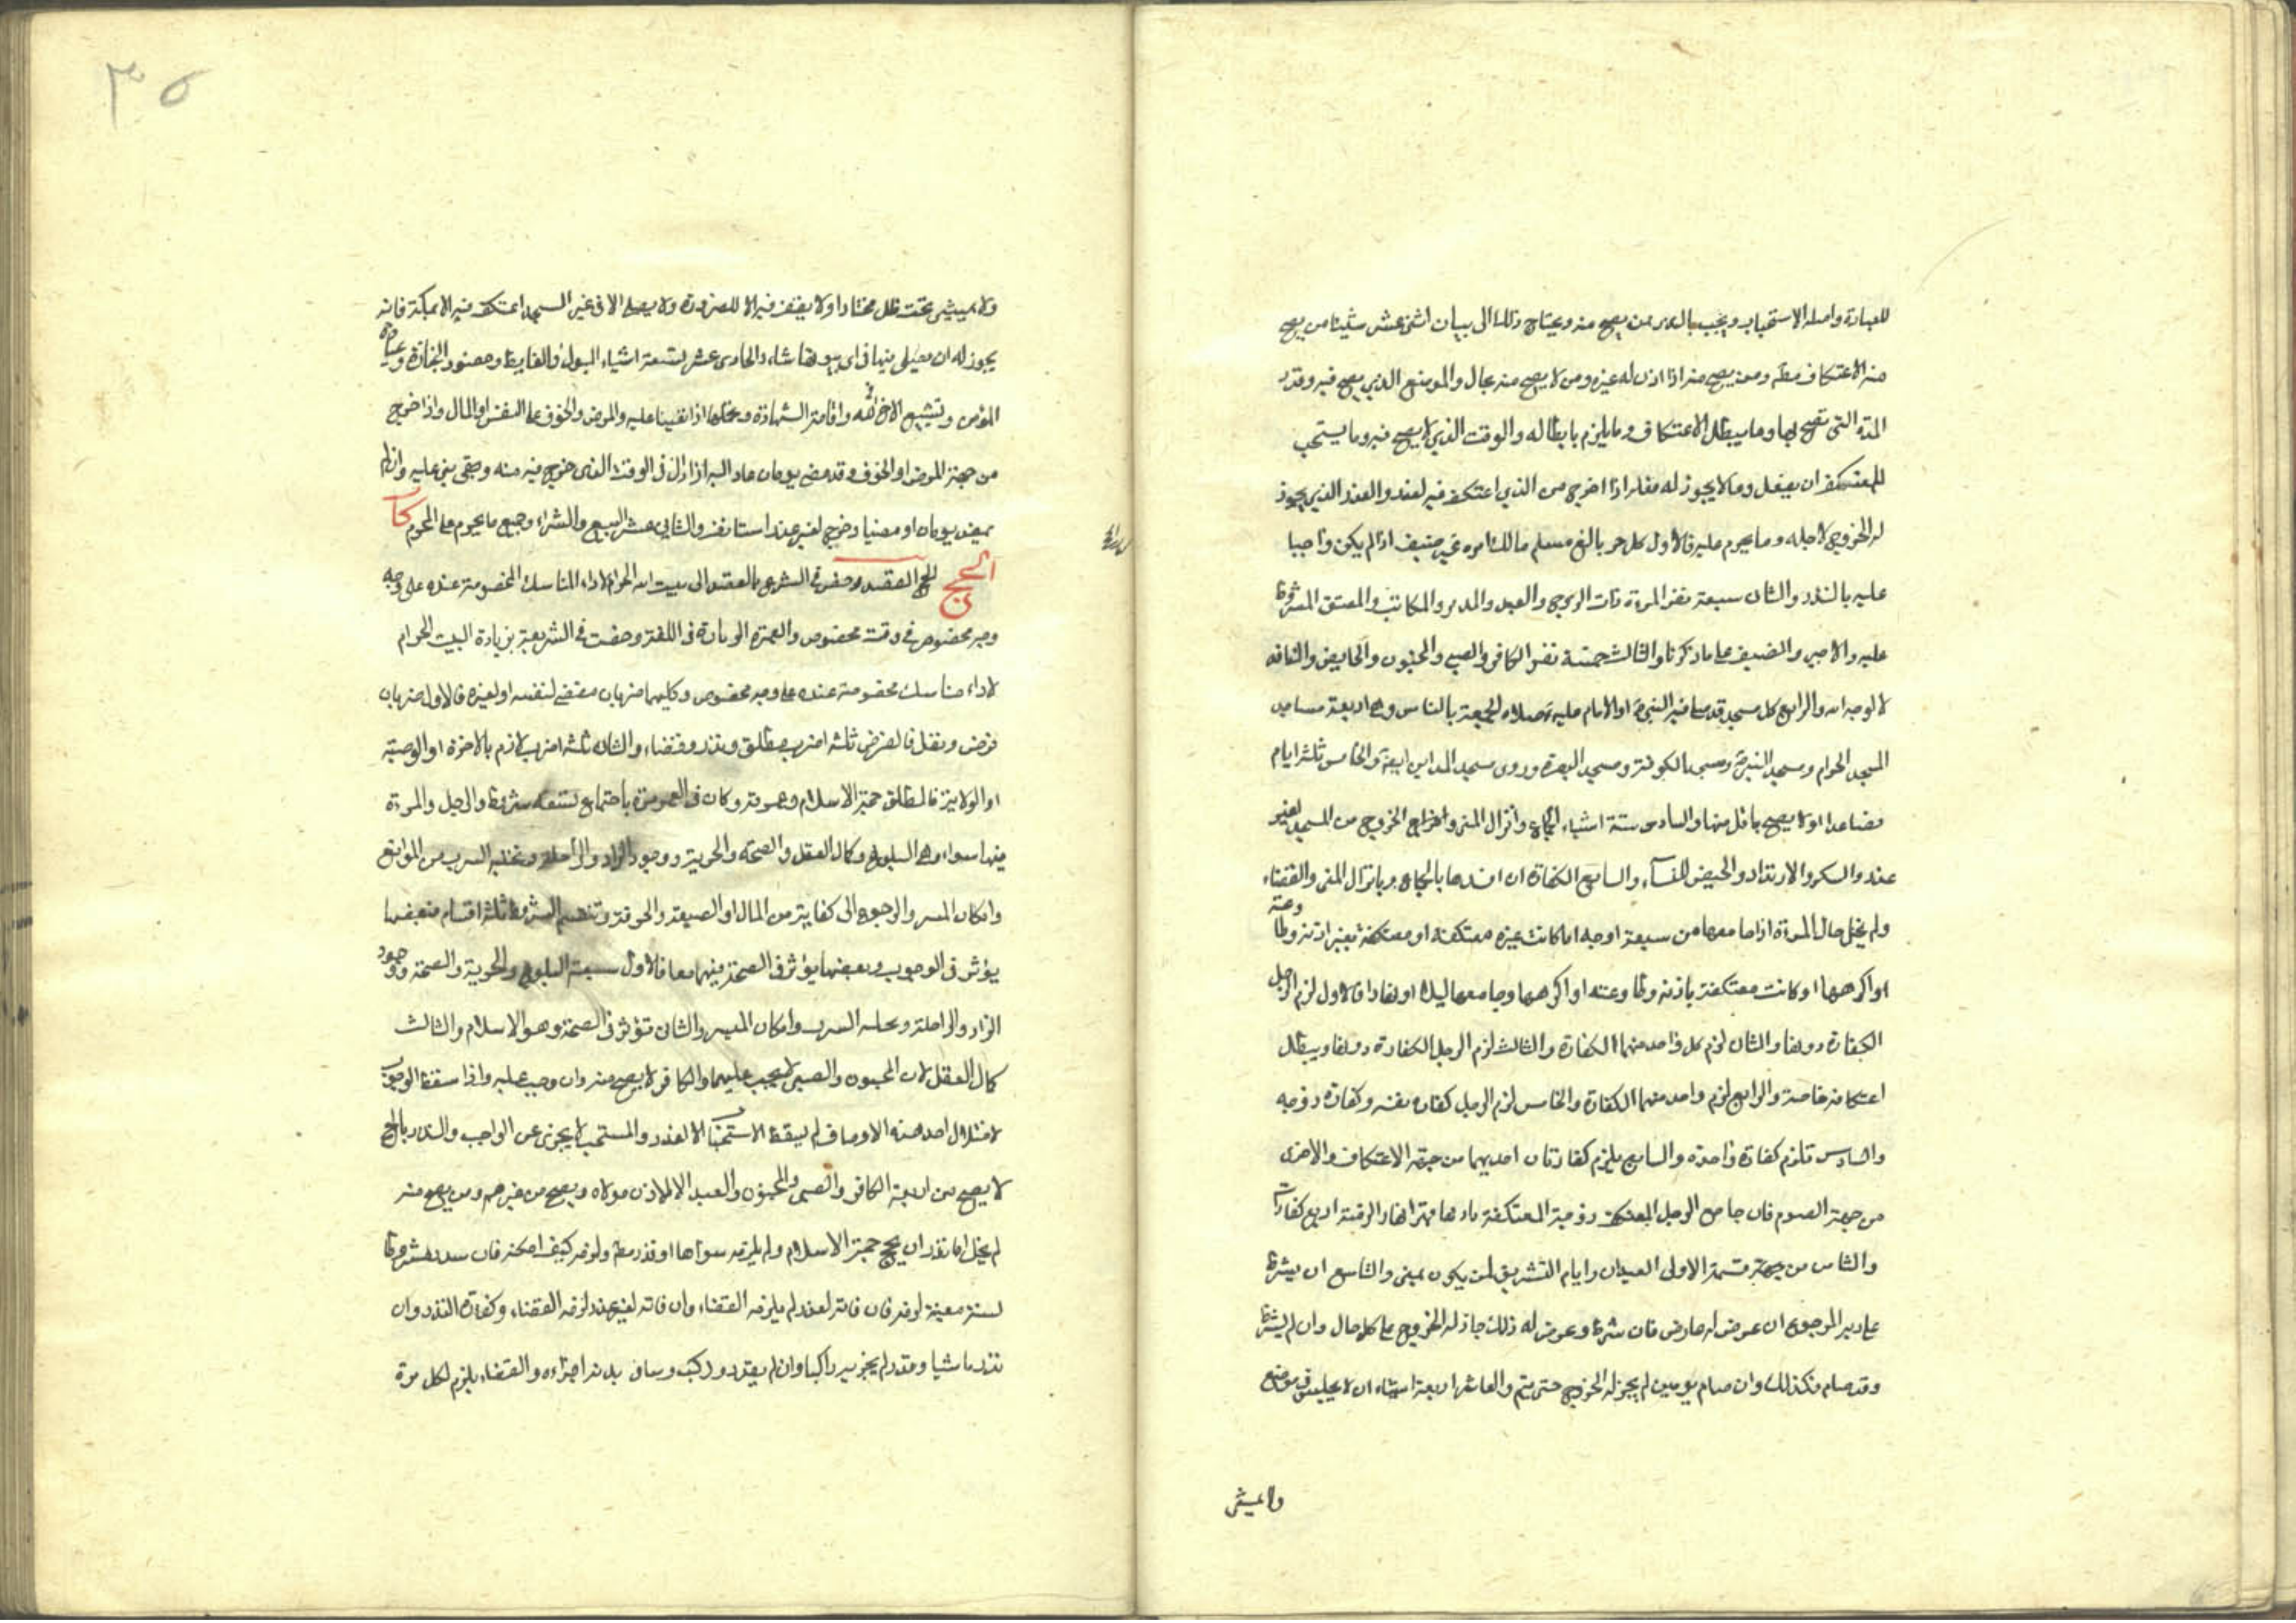 للعبادة واصله الاستحباب ويجب بالنذر ممن يصح منه ويحتاج ذلك الى بيان اثنى عشر شيئا من يصح
منه الاعتكاف مطلقا ومن يصح منه اذا اذن له غيره ومن لا يصح منه بحال والموضع الذي يصح فيه وقدر
المدة التى تصح بها وما يبطل الاعتكاف وما يلزم بابطاله والوقت الذي لا يصح فيه وما يستحب
للمعتكف ان يفعل وما لا يجوز له فعله اذا خرج من الذي اعتكف فيه لعذر والعذر الذي يجوز
له الخروج لاجله وما يحرم عليه فالاول كل حر بالغ مسلم مالك امره غير ضيف اذا لم يكن واجبا
عليه بالنذر والثان سبعة نفر المرءة ذات الزوج والعبد والمدبر والمكاتب والمعتق المشروط
عليه والاجير والضيف على ما ذكرنا والثالث خمسة نفر الكافر والصبي والمجنون والحايض والناذر
لا لوجه الله والرابع كل مسجد قد صلى فيه النبي او الامام عليه صلاة الجمعة بالناس وهى اربعة مساجد
المسجد الحرام ومسجد النبي ومسجد الكوفة ومسجد البصرة وروى مسجد المداين ايضا والخامس ثلثة ايام
فصاعدا ولا يصح باقل منها والسادس ستة اشياء الجماع وانزال المنى واخراج الخروج من المسجد لغير
عذر والسكر والارتداد والحيض للنساء والسابع الكفارة ان افسدها بالجماع وبانزال المنى والقضاء
ولم يخل حال المرءة اذا جامعها من سبعة اوجه اما كانت غيره معتكفة او معتكفة بغير اذنه وطا وعته
او اكرهها او كانت معتكفة باذنه وطاوعته او اكرهها وجامعها ليلا او نهارا فالاول لزم الرجل
الكفارة دونها والثان لزم كل واحد منهما الكفارة والثالث لزم الرجل الكفارة دونها ويبطل
اعتكافه خاصة والرابع لزم واحد منهما الكفارة والخامس لزم الرجل كفارة نفسه وكفارة زوجه
والسادس تلزم كفارة واحدة والسابع يلزم كفارتان احديهما من جهة الاعتكاف والاخرى
من جهة الصوم فان جامع الرجل المعتكف زوجته المعتكفة باذنها نهارا لزمته اربع كفارات
والثامن من جهة قسمة الاولى العيدان وايام التشريق لمن يكون بمنى والتاسع ان يشرط
على ربه الرجوع ان عرض له عارض فان شرط وعرض له ذلك جاز له الخروج على كل حال وان لم يشرط
وقد صام فكذلك وان صام يومين لم يجز له الخروج حتى يتم والعاشر اربعة اشياء ان لا يجلس في موضع
ولا يمشى
٣٥
ولا يمشى تحت ظل مختارا ولا يقف فيه الا للضرورة ولا يصلى الا فى غير المسجد اعتكف فيه الا بمكة فانه
يجوز له ان يصلى بها فى اى بيوتها شاء والحادى عشر تسعة اشياء البول والغايط وحضور الجنازة وعيادة
المؤمن وتشييع الاخ لله واقامة الشهادة وتحملها اذا تعينا عليه والمرض والخوف على النفس او المال واذا خرج
من جهة المرض او الخوف وقد مضى يومان عاد اليه اذا زال فى الوقت الذى خرج فيه منه وبنى عليه وان لم
يمض يومان او مضيا وخرج لغير عذر استانف والثانى عشر البيع والشراء وجميع ما يحرم على المحرم كتاب
الحج الحج القصد وخص فى الشرع بالقصد الى بيت الله الحرام لاداء المناسك المخصوصة عنده على وجه
وجه مخصوص فى وقت مخصوص والعمرة الزيارة فى اللغة وخصت فى الشريعة بزيارة البيت الحرام
لاداء مناسك مخصوصة عنده على وجه مخصوص وكليهما ضربان مفتض لنفسه او لغيره فالاول ضربان
فرض ونفل فالفرض ثلثة اضرب مطلق ونذر وقضاء والثان ثلثة اضرب لازم بالاجرة او الوصية
او الولاية فالمطلق حجة الاسلام وعمرته وكان فى العمر مرة باجتماع تسعة شروط والرجل والمرءة
فيها سواء وهى البلوغ وكمال العقل والصحة والحرية ووجود الزاد والراحلة وتخلية السرب من الموانع
وامكان المسير والرجوع الى كفاية من المال او الصيعة والحرفة وتنقسم الشروط ثلثة اقسام فبعضها
يؤثر فى الوجوب وبعضها يؤثر فى الصحة فيهما معا فالاول سبعة البلوغ والحرية والصحة ووجود
الزاد والراحلة وتخلية السرب وامكان المسير والثان تؤثر فى الصحة وهو الاسلام والثالث
كمال العقل لان المجنون والصبى لا يجب عليهما والكافر لا يصح منه وان وجب عليه واذا سقط الوجوب
لاختلال احد هذه الاوصاف لم يسقط الاستحباب الا لعذر والمستحب لا يجزى عن الواجب والنذر بالحج
لا يصح من اربعة الكافر والصبى والمجنون والعبد الا باذن مولاه ويصح من غيرهم ومن يصح منه
لم يخل اما نذر ان يحج حجة الاسلام ولم يلزمه سواها او نذر مطلقا ولزمه كيف امكنه فان شروطا
لسنة معينة لزمه فان فاته لعذر لم يلزمه القضاء وان فاته لغير عذر لزمه القضاء وكفارة النذر وان
نذر ماشيا وقدر لم يجز يسير راكبا وان لم يقدر وركب وساق بدنه اجزاءه والقضاء يلزم لكل مرة